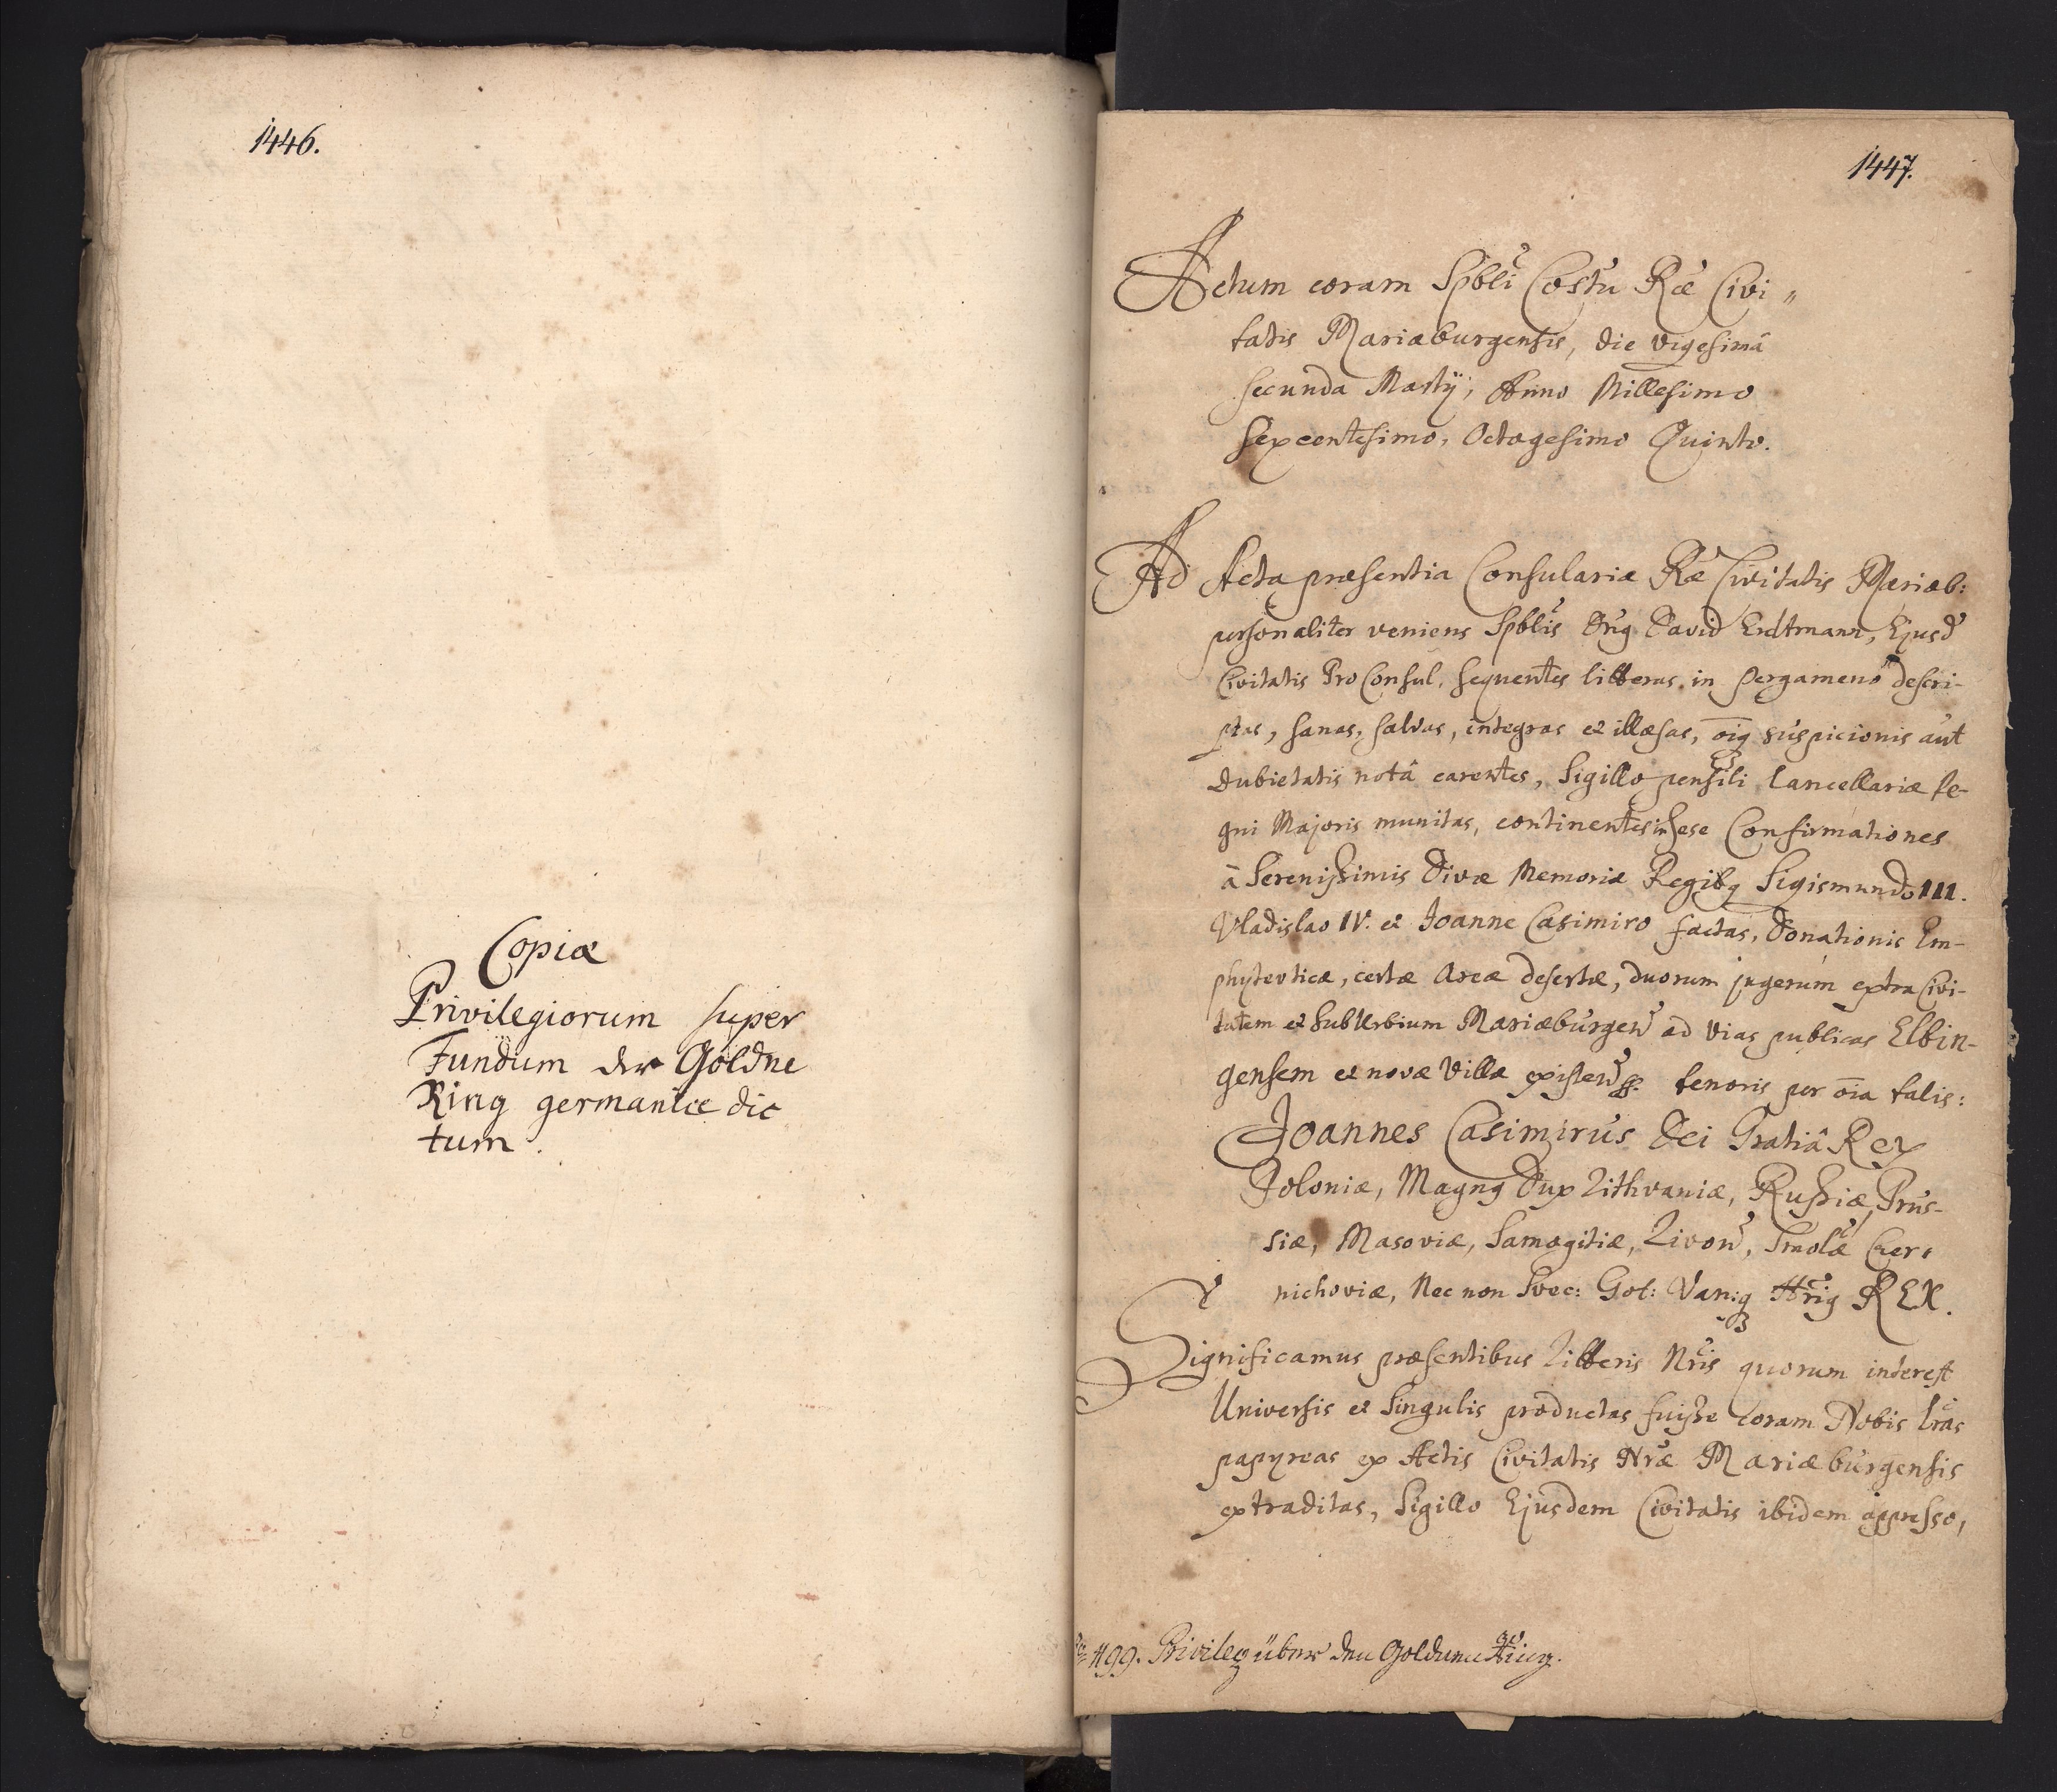 1446.
Copiæ
Privilegiorum super
Fundum der Goldne
Ring germanice dic
tum.
1447.
Actum coram Spbli Costu Ræ Civi„
tatis Mariæburgensis, die vigesimâ
secunda Martÿ, Anno Millesimo
Sexcentesimo, Octogesimo Quinto.
Ad Acta præsentia Consularia Ræ Civitatis Mariæb:
personaliter veniens Spblis Dng David Erdtmann, Ejusd
Civitatis ProConsul, sequentes litteras in Pergameno descri-
ptas, sanas, salvas, integras et illæsas, oig suspicionis aut
dubietatis notâ carentes, Sigillo pensili Cancellariæ Re-
gni Majoris munitas, continentes in sese Confirmationes
â Serenissimis Divæ Memoriæ Regibg Sigismundo III.
Vladislao IV. et Joanne Casimiro factas, Donationis Em-
phytevticæ, certæ Areæ desertæ, duorum jugerum extra Civi-
tatem et SubUrbium Mariæburgen ad vias publicas Elbin-
gensem et novæ Villæ existen tenoris per oia talis:
Joannes Casimirus Dei Gratiâ Rex
Poloniæ, Magng Dux Lithvaniæ, Russiæ, Prus-
siæ, Masoviæ, Samogitiæ, Livon, Smolæ Czer-
nichoviæ, Nec non Svec: Got: Van:g Hrig REX.
Significamus præsentibus Litteris Nris quorum interest
Universis et Singulis productas fuisse coram Nobis lras
papyreas ex Actis Civitatis Nræ Mariæburgensis
extraditas, Sigillo Ejusdem Civitatis ibidem appresso,
499. Privileg über den Goldenen Ring.